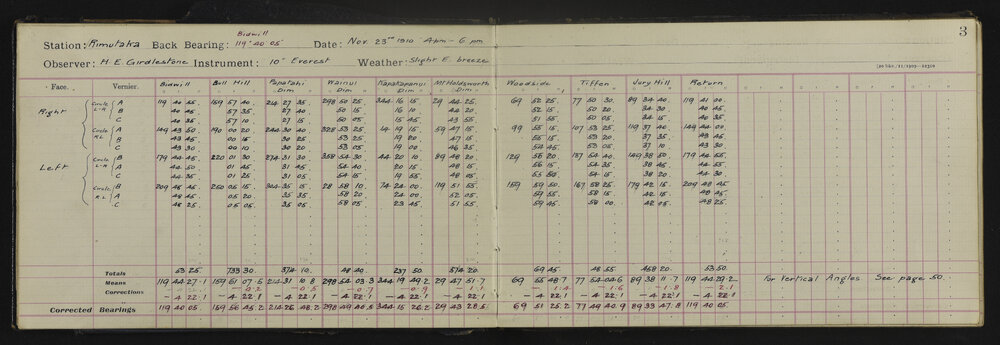 3
Bidwill
Station: Rimutaka Back Bearing: 119° 40 05 Date: Nov. 23rd 1910 4 pm - 6 pm
Observer: H. E. Girdlestone Instrument: 10" Everest Weather: Slight E. breeze
Face. Vernier. Bidwill Bull Hill Papatahi Dim Wainui Dim Kapakapanui Dim Mt Holdsworth Dim Woodside Tiffen Jury Hill Return
Right Circle L.H A 119 40 55 159 57 40 214 27 35 298 50 25 344 16 15 29 44 25 69 52 25 77 50 30 89 34 40 119 41 00
B 40 45 57 35 27 40 50 15 16 10 44 20 52 15 50 20 34 30 40 45
C 40 35 57 10 27 15 50 05 15 45 43 55 51 55 50 05 34 15 40 35
Circle R.L A 149 43 50 190 00 20 244 30 40 328 53 25 14 19 15 59 47 15 99 55 15 107 53 25 119 37 40 149 44 00
B 43 45 00 15 30 25 53 25 19 20 47 15 55 15 53 20 37 35 43 45
C 43 30 00 10 30 20 53 05 19 00 46 35 54 45 53 05 37 10 43 30
Left Circle L-H B 179 44 45 220 01 30 274 31 30 358 54 30 44 20 10 89 48 20 129 56 20 137 54 40 149 38 50 179 44 55
A 44 50 01 45 31 45 54 40 20 15 48 15 56 15 54 35 38 45 44 55
C 44 35 01 25 31 05 54 15 19 55 48 05 55 50 54 15 38 20 44 30
Circle R.L B 209 48 45 250 05 15 304 35 15 28 58 10 74 24 00 119 51 55 159 59 50 167 58 25 179 42 15 209 48 45
A 48 45 05 20 35 35 58 20 24 00 52 05 59 55 58 15 42 15 48 55
C 48 25 05 05 35 05 58 05 23 45 51 55 59 45 58 00 42 05 48 25
Totals 53 25 733 30 374 10 48 40 237 50 574 20 69 45 48 55 458 20 53 50
Means 119 44 27.1 159 61 07.5 214 31 10.8 298 54 03.3 344 19 49.2 29 47 51.7 69 55 48.7 77 54 04.6 89 38 11.7 119 44 29.2 For Vertical Angles See page 50
Corrections - 0.2 - 0.5 - 0.7 - 0.9 - 1.1 - 1.4 - 1.6 - 1.8 - 2.1
- 4 22.1 - 4 22.1 - 4 22.1 - 4 22.1 - 4 22.1 - 4 22.1 - 4 22.1 - 4 22.1 - 4 22.1 - 4 22.1
Corrected Bearings 119 40 05 159 56 45.2 214 26 48.2 298 49 40.5 344 15 26.2 29 43 28.5 69 51 25.2 77 49 40.9 89 33 47.8 119 40 05